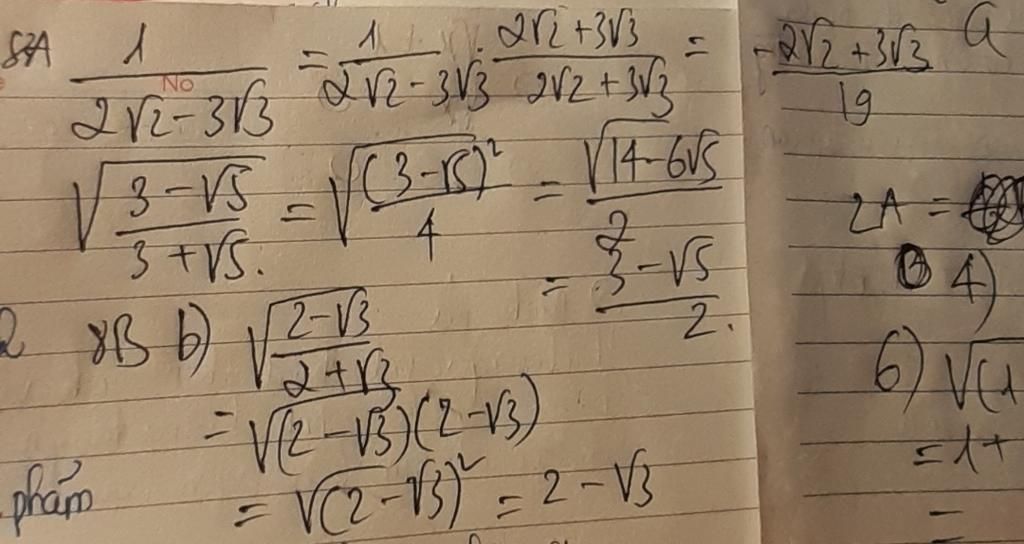 8A 1/(2√2-3√3) = 1/(2√2-3√3) . (2√2+3√3)/(2√2+3√3) = -(2√2+3√3)/19
No
√((3-√5)/(3+√5)). = √((3-√5)²/4) = √(14-6√5)/2
= (3-√5)/2.
8B b) √((2-√3)/(2+√3))
= √((2-√3)(2-√3))
= √((2-√3)²) = 2-√3
phẩm
a
2A =
4)
6) √(1
= 1+
=